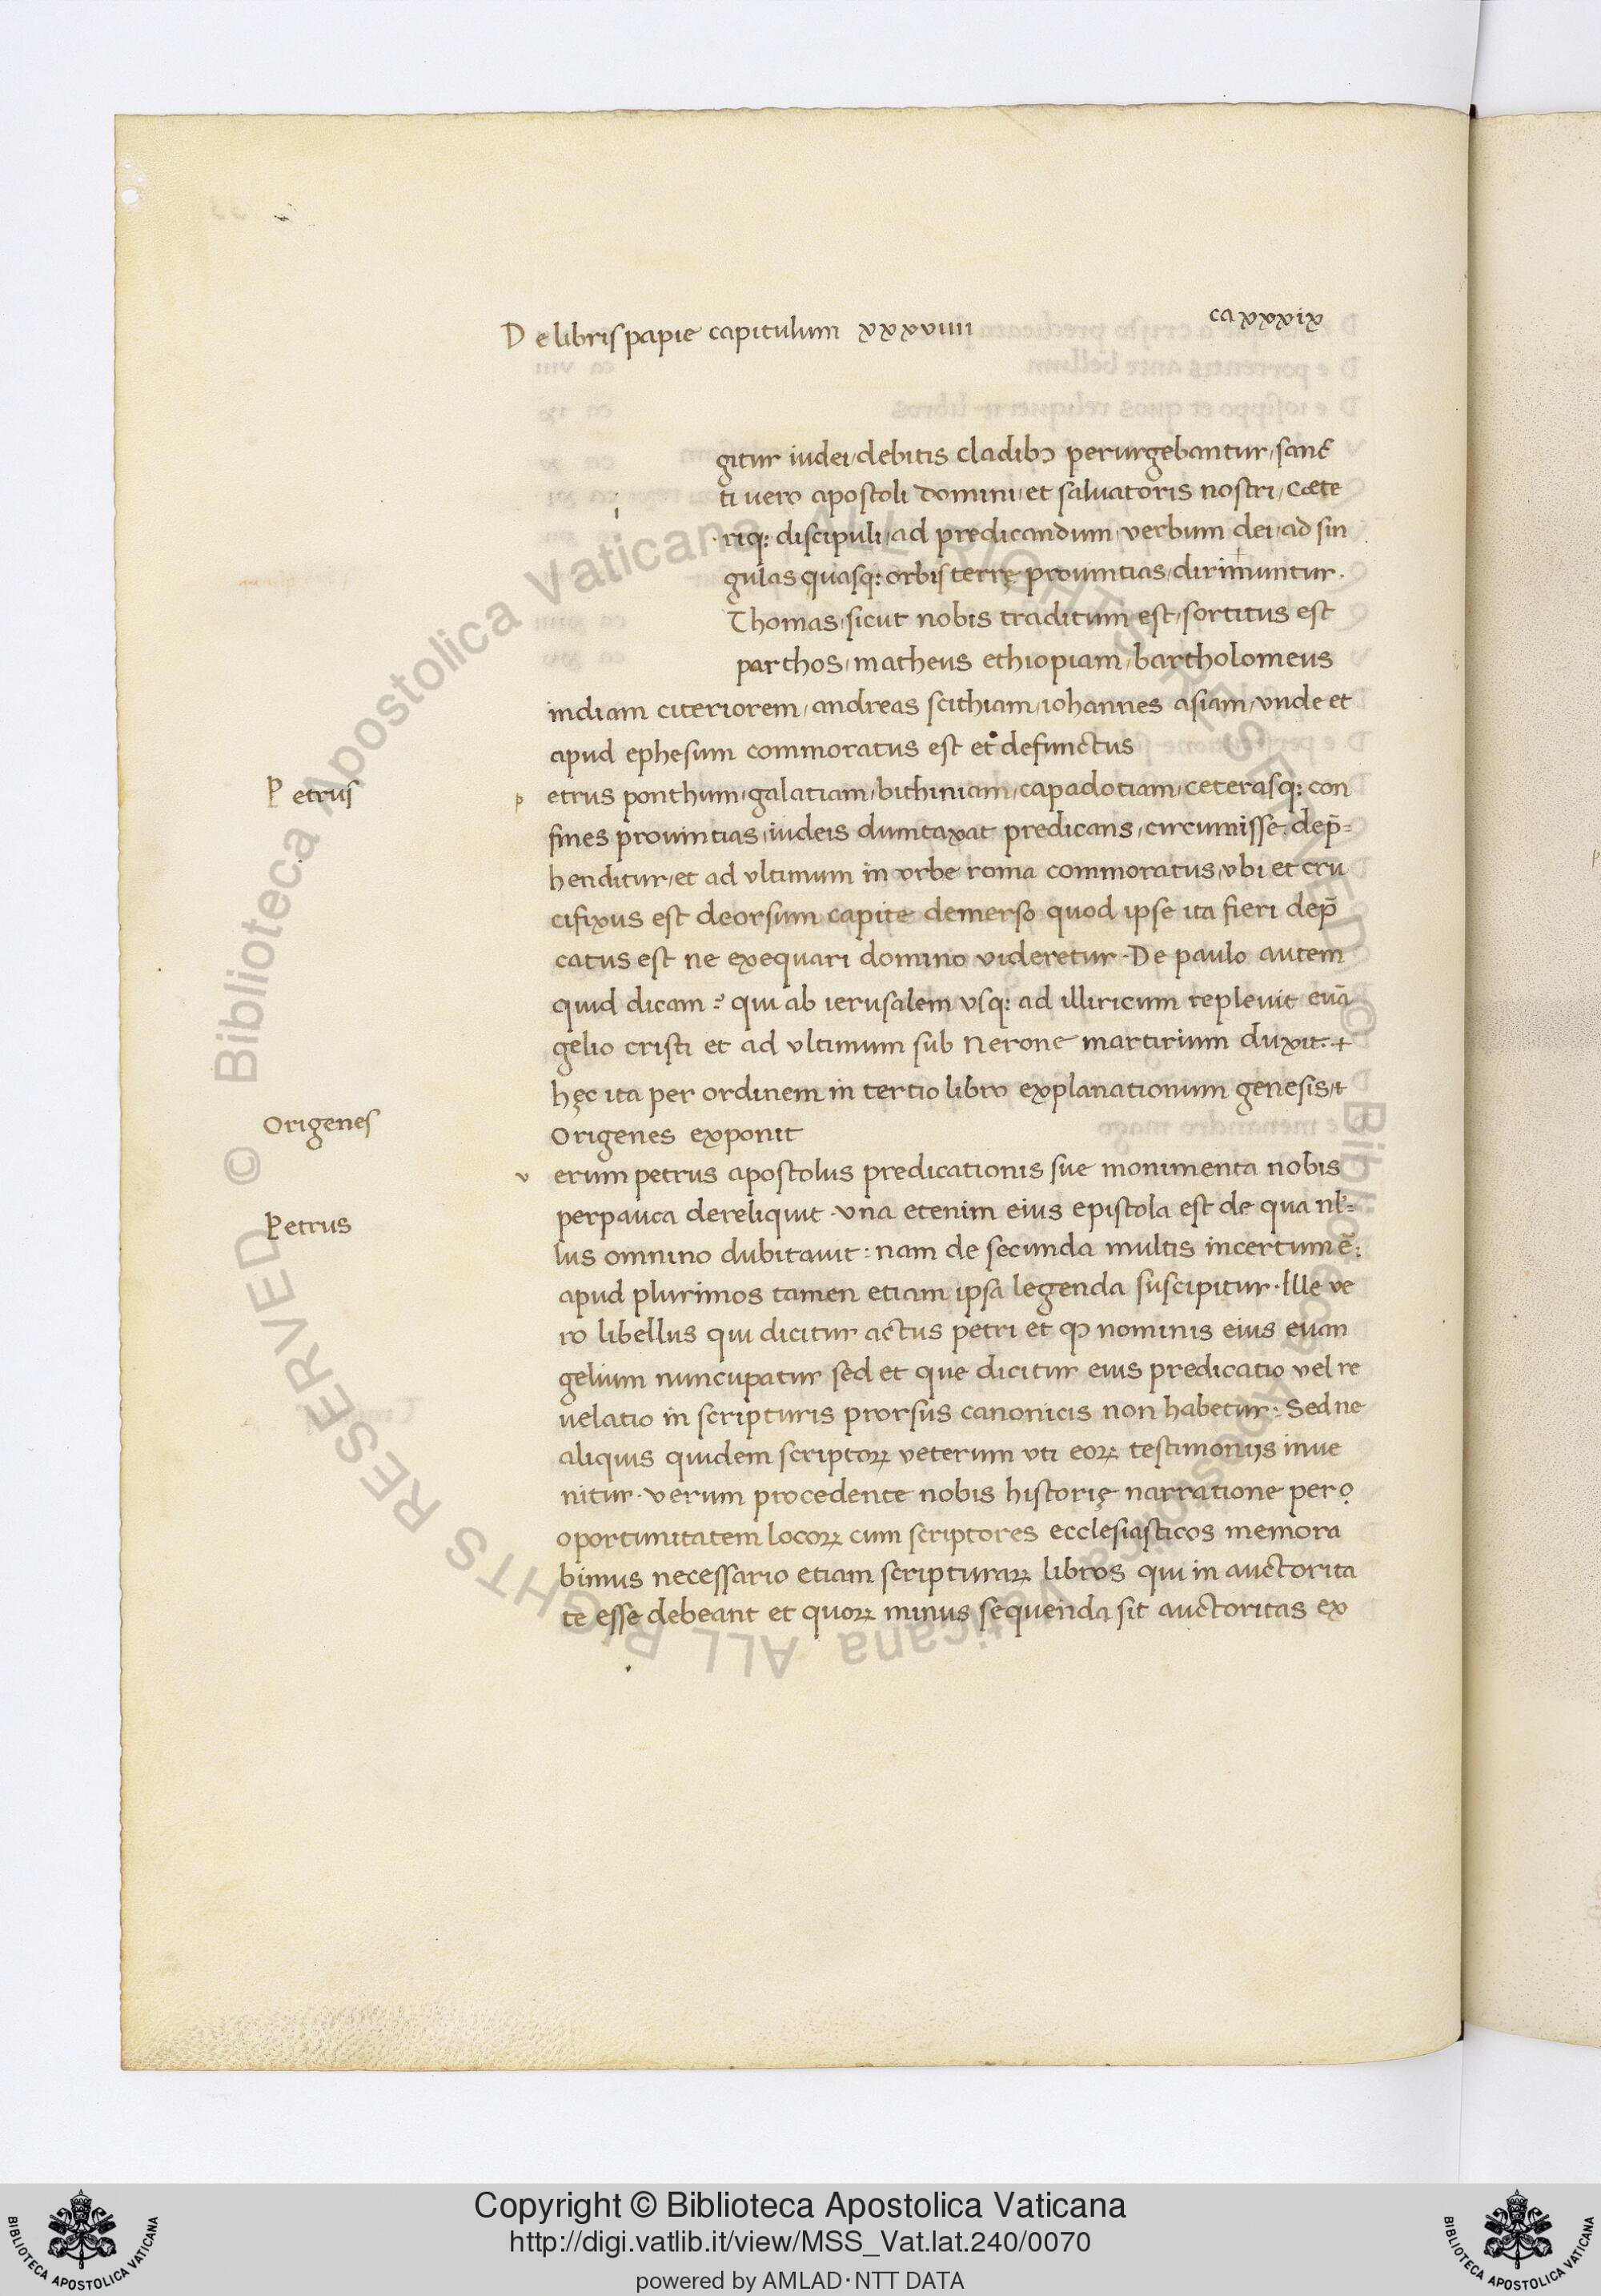 De libris papie capitulum xxxviiii
ca xxxix
gitur iudei, debitis cladibɔ perurgebantur, sanc̄
i
ti uero apostoli domini, et saluatoris nostri, cæte
riq: discipuli, ad predicandum, verbum dei, ad sin
gulas quasq: orbis terrę prouintias, dirimuntur.
Thomas, sicut nobis traditum est, sortitus est
parthos, matheus ethiopiam, bartholomeus
indiam citeriorem, andreas scithiam, iohannes asiam, vnde et
apud ephesum commoratus est et defunctus
Petrus
p etrus ponthum, galatiam, bithiniam, capadotiam, ceterasq: con
fines prouintias, iudeis dumtaxat predicans, circumisse dep̄=
henditur, et ad vltimum in vrbe roma commoratus, vbi et cru
cifixus est deorsum capite demerso quod ipse ita fieri dep̄
catus est ne exequari domino videretur. De paulo autem
quid dicam? qui ab ierusalem vsq: ad illiricum repleuit euā
gelio cristi et ad vltimum sub Nerone martirium duxit:+
hęc ita per ordinem in tertio libro explanationum genesis,
Origenes
Origenes exponit
v erum petrus apostolus predicationis sue monimenta nobis
Petrus
perpauca dereliquit. vna etenim eius epistola est de qua nl̄=
lus omnino dubitauit: nam de secunda multis incertum ē:
apud plurimos tamen etiam ipsa legenda suscipitur. Ille ve
ro libellus qui dicitur actus petri et qɔ nominis eius euan
gelium nuncupatur sed et que dicitur eius predicatio vel re
uelatio in scripturis prorsus canonicis non habetur: Sed ne
aliquis quidem scriptoꝝ veterum vti eoꝝ testimoniis inue
nitur. verum procedente nobis historię narratione per
oportunitatem locoꝝ cum scriptores ecclesiasticos memora
bimus necessario etiam scripturaꝝ libros qui in auctorita
te esse debeant et quoꝝ minus sequenda sit auctoritas ex
© Biblioteca Apostolica Vaticana ALL RIGHTS RESERVED © Biblioteca Apostolica Vaticana ALL RIGHTS RESERVED
BIBLIOTECA APOSTOLICA VATICANA
Copyright © Biblioteca Apostolica Vaticana
http://digi.vatlib.it/view/MSS_Vat.lat.240/0070
powered by AMLAD·NTT DATA
BIBLIOTECA APOSTOLICA VATICANA